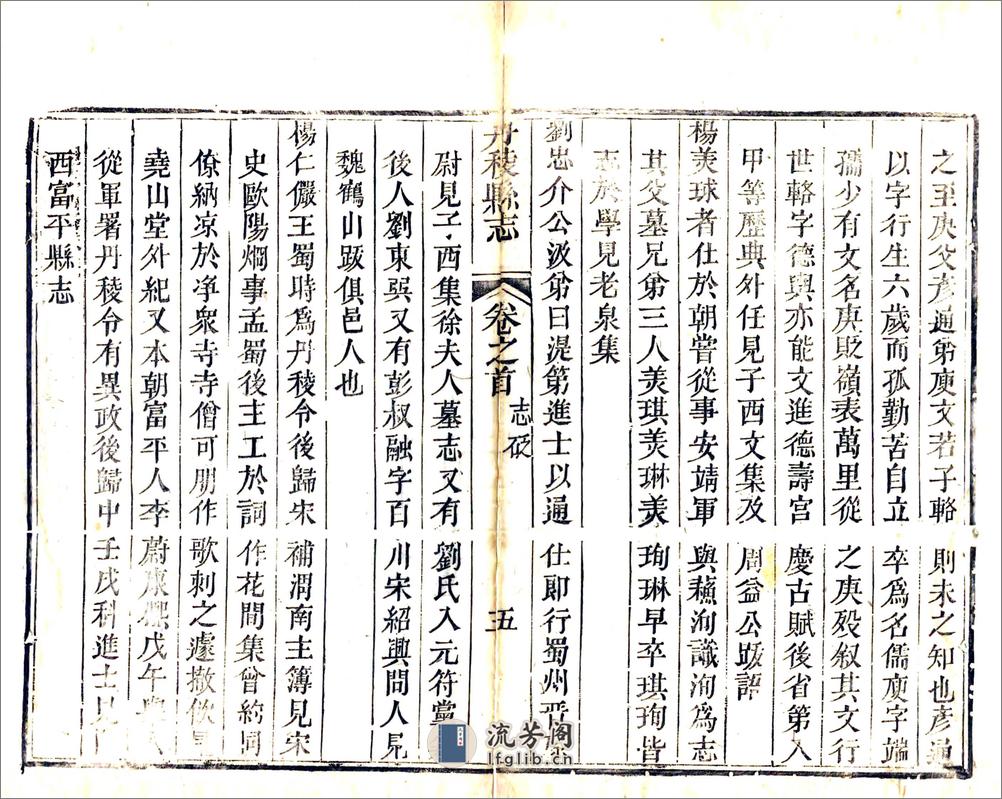 之至庚父彥通弟庾文若子輅則未之知也彥通
以字行生六歲而孤勤苦自立卒爲名儒庾字端
孺少有文名庚貶嶺表萬里從之庚歿叙其文行
世輅字德輿亦能文進德壽宮慶古賦後省第入
甲等歷典外任見子西文集及周益公跋語
楊美球者仕於朝嘗從事安靖軍與蘇洵識洵爲志
其父墓兄弟三人美琪美琳美珣琳早卒琪珣皆
志於學見老泉集
劉忠介公汲弟曰湜第進士以通仕郎行蜀州晉
丹稜縣志 卷之首 志砭 五
尉見子西集徐夫人墓志又有劉氏入元符黨
後人劉東巽又有彭叔融字百川宋紹興間人見
魏鶴山跋俱邑人也
楊仁儼王蜀時爲丹稜令後歸宋補渭南主簿見宋
史歐陽烱事孟蜀後主工於詞作花間集曾約同
僚納凉於净衆寺寺僧可朋作歌刺之遽撤飲見
堯山堂外紀又本朝富平人李蔚康熙戊午
從軍署丹稜令有異政後歸中壬戌科進士見
西富平縣志
流芳阁
lfglib.cn